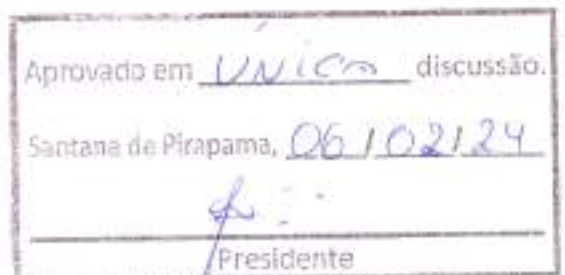 Aprovado em ÚNICA discussão.
Santana de Pirapama, 06/02/24
Presidente